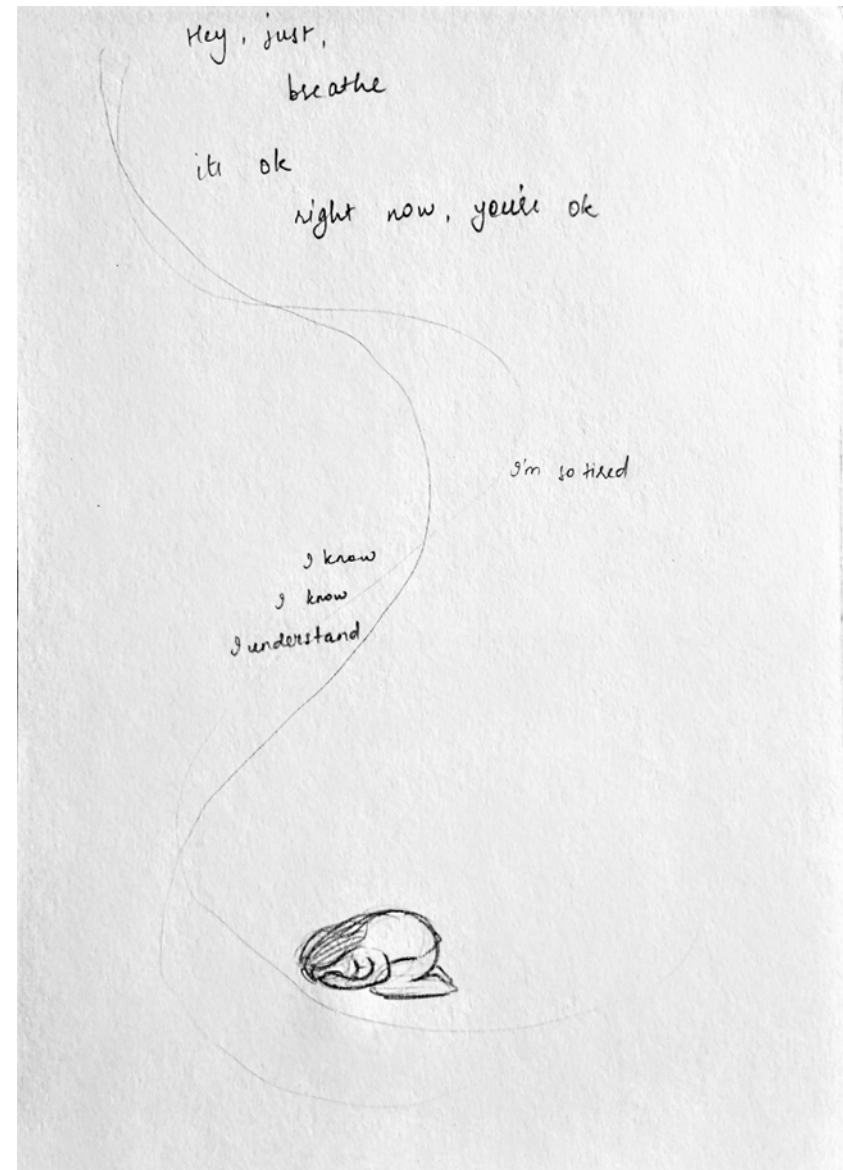 Hey, just,
breathe
its ok
right now, you're ok
I'm so tired
I know
I know
I understand